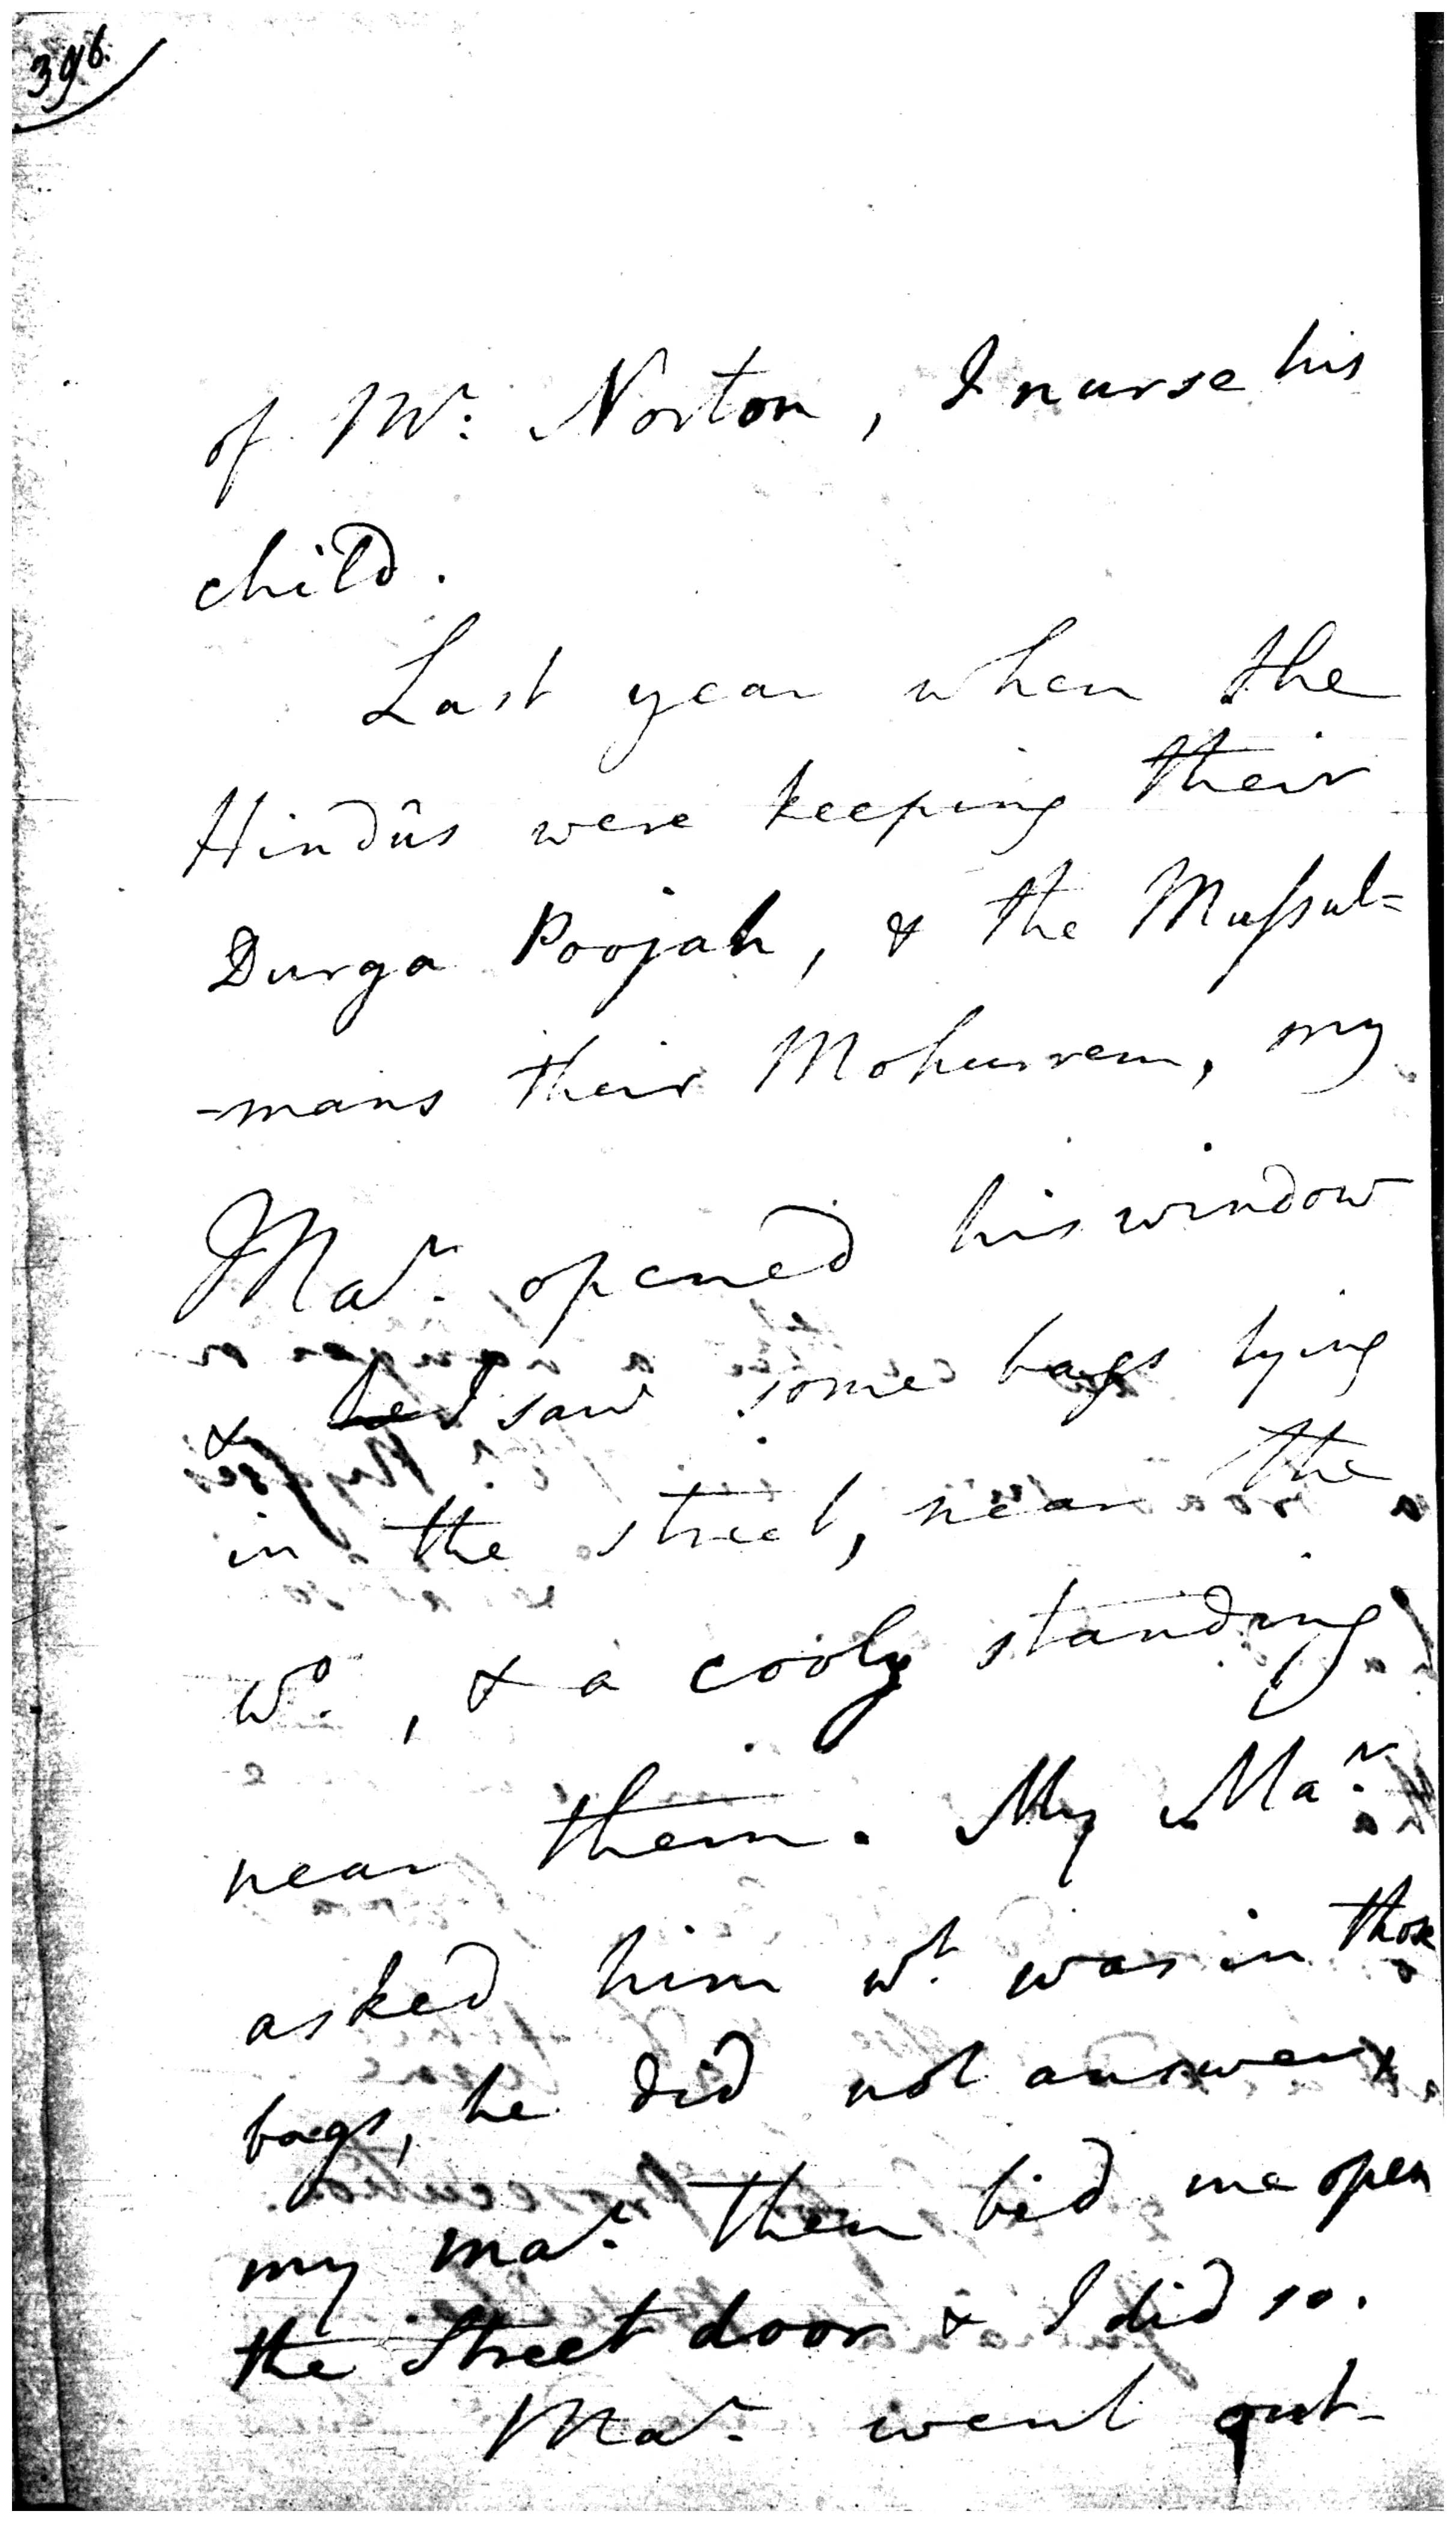 396.
of Mr. Norton, I nurse his
child.
Last year when the
Hindûs were keeping their
Durga Poojah, & the Mussul=
-mans their Mohurrem, my
Mar. opened his window
& he I saw some bags lying
in the street, near the
wo., & a cooly standing
near them. My Mar.
asked him wt. was in those
bags, he did not answer,
my mar. then bid me open
the Street door & I did so.
Mar. went out